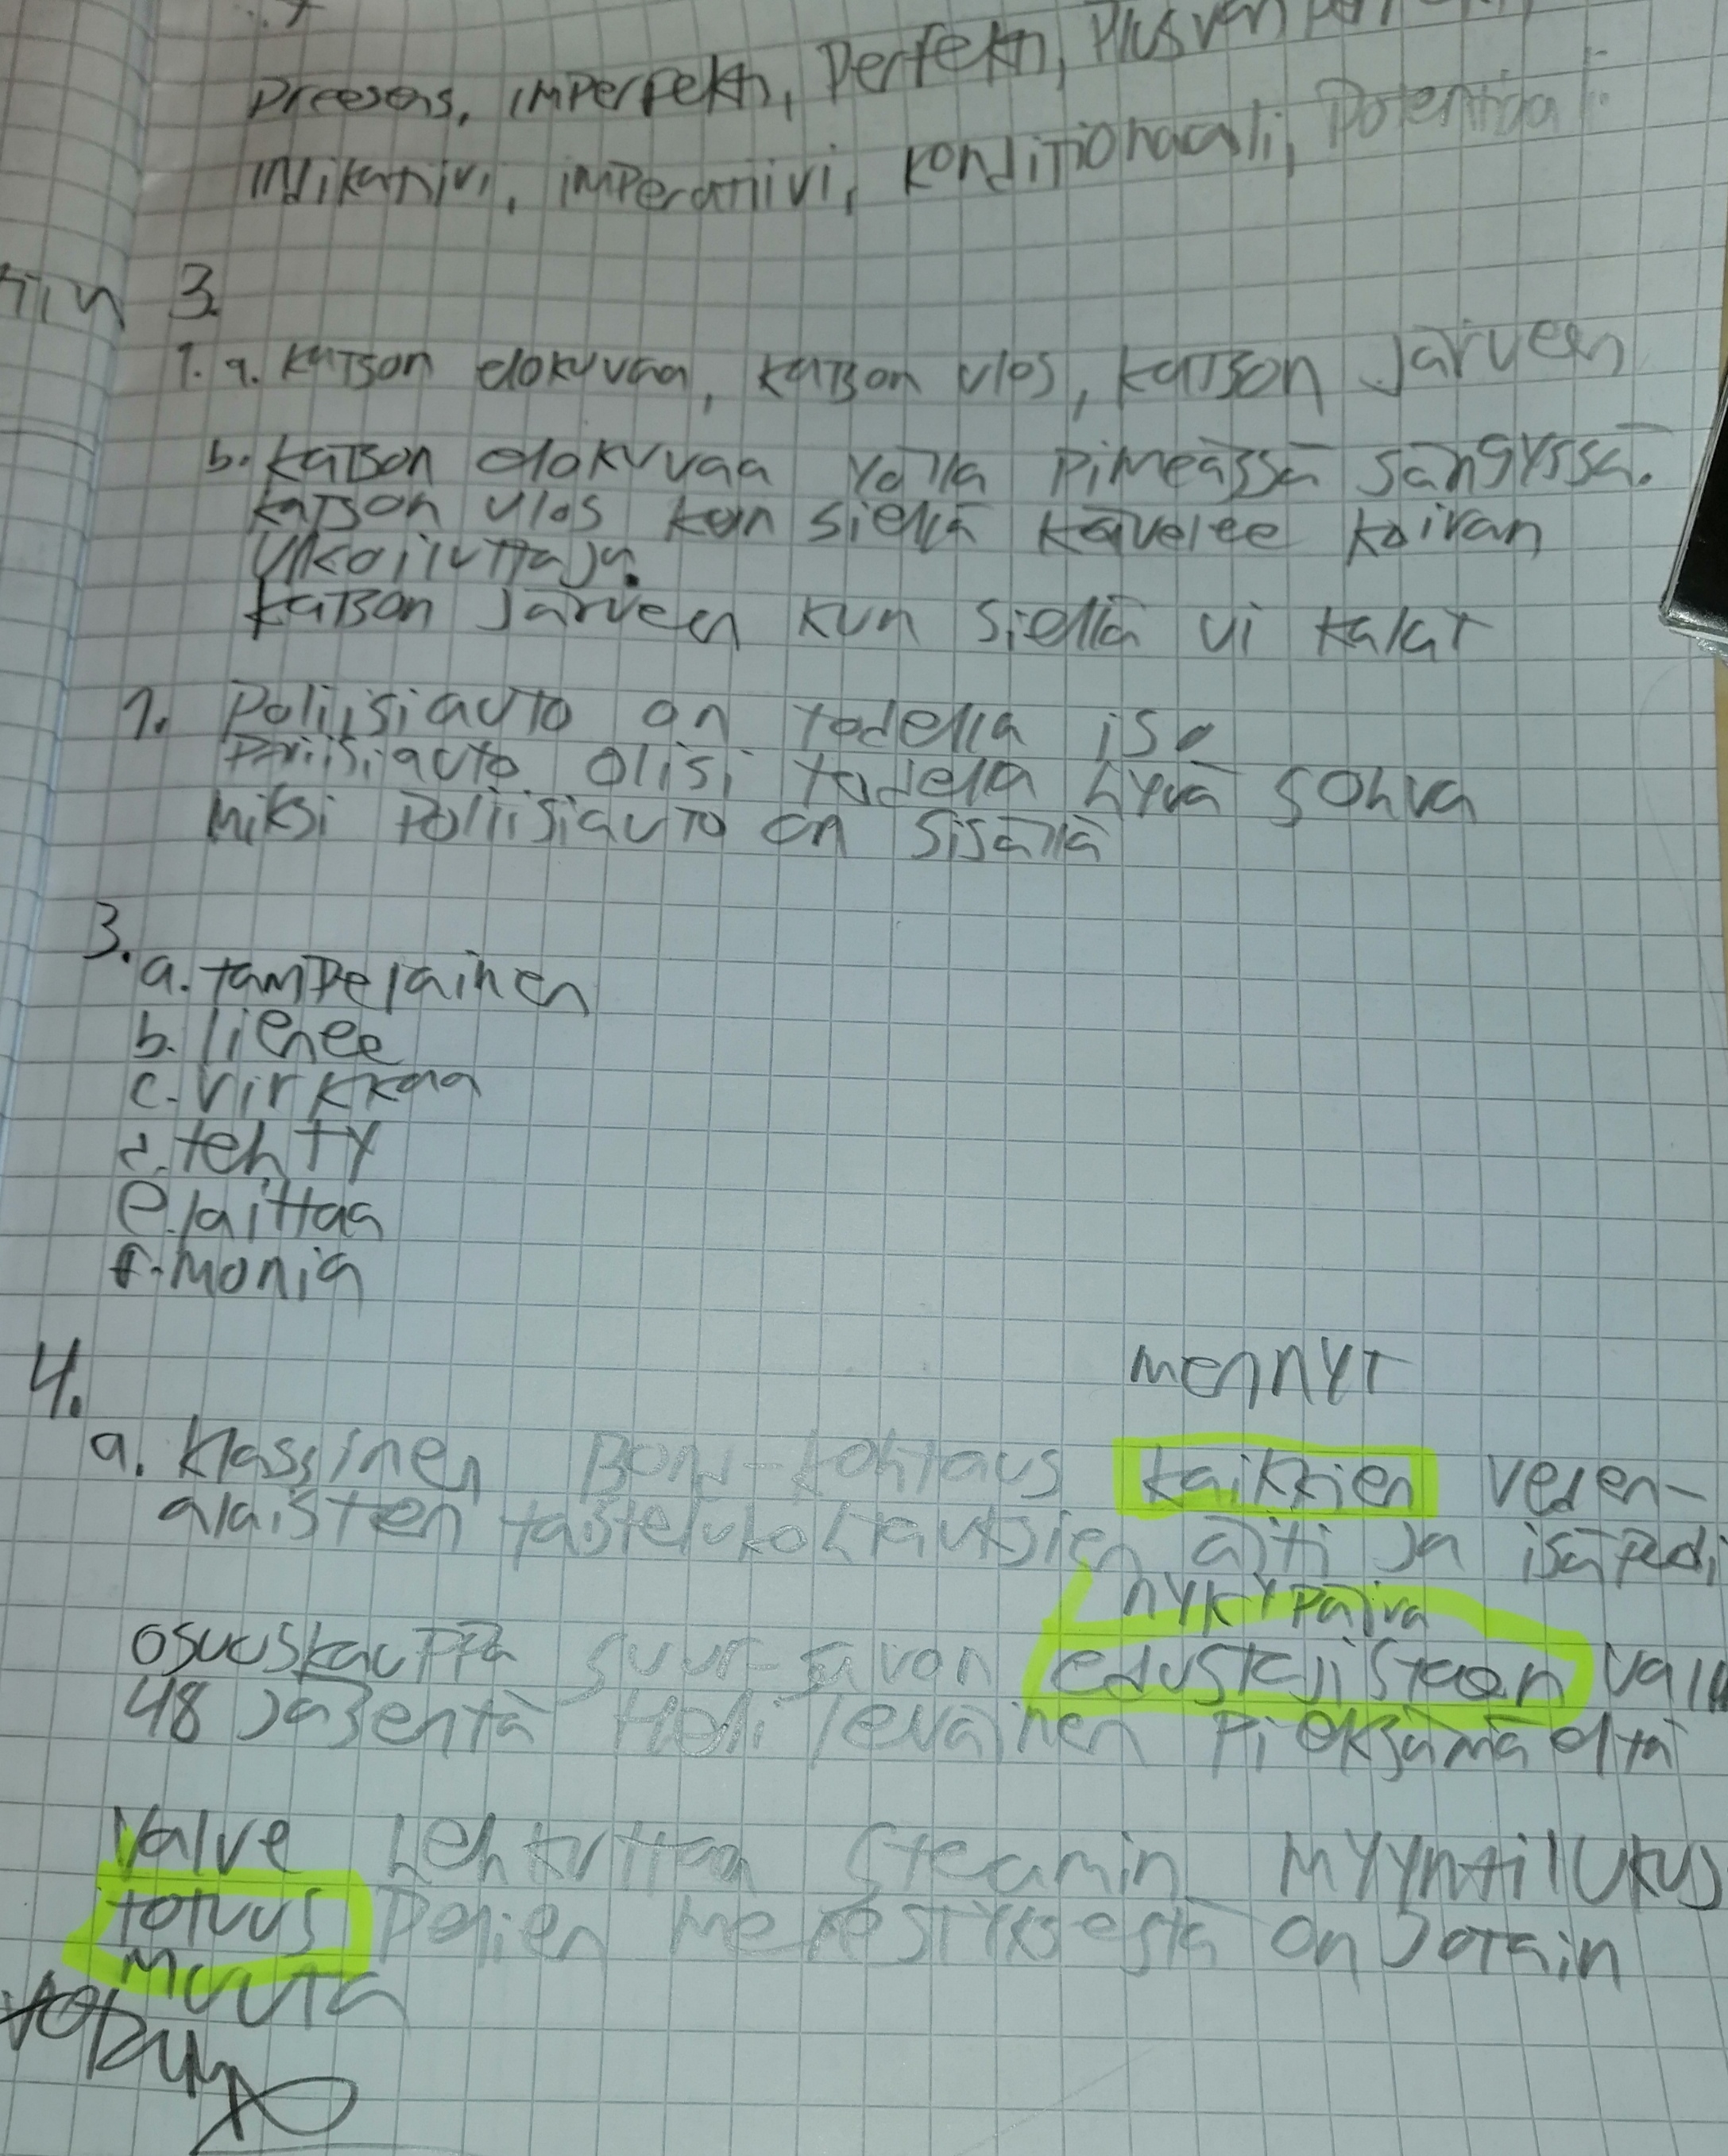 preesens, imperfekti, Perfekti,
indikatiivi, imperatiivi, konditionaali, Potentiaali
3.
1. a. katson elokuvaa, katson ulos, katson järveen
b. katson elokuvaa yöllä pimeässä sängyssä.
katson ulos kun siellä kävelee koiran
ulkoiluttaja.
katson järveen kun siellä ui kalat
1. Poliisiauto on todella iso
Poliisiauto olisi todella hyvä sohva
miksi Poliisiauto on sisällä
3.
a. tampelainen
b. lienee
c. virkkaa
d. tehty
e. laittaa
f. monia
4.
mennyt
a. klassinen Bond-kohtaus kaikkien veden-
alaisten taistelukohtauksien äiti ja isäpedi
nykypäivä
osuuskauppa suur-savon edustajistoon
48 jäsentä Heli leväinen Pieksämäeltä
Valve kehtuttaa Steamin myyntilukus
totuus Pelien menestyksestä on jotain
muuta